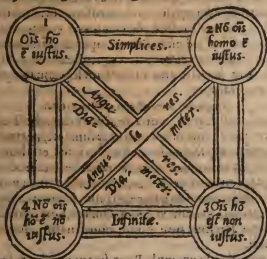 1
Oīs hō
ē iustus.
Simplices.
2 Nō oīs
homo ē
iustus.
Angu
la
res.
Dia
meter.
Angu-
la
res.
Dia-
metres.
4 Nō oīs
hō ē nō
iustus.
Infinitæ.
3 Oīs hō
est non
iustus.